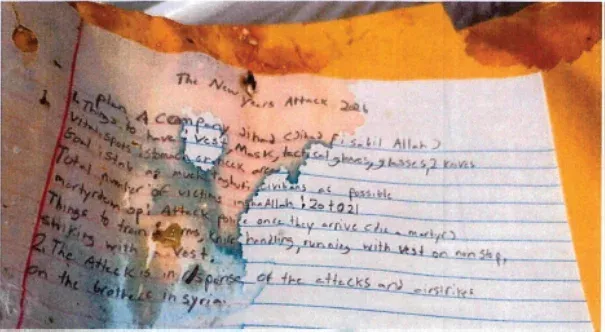 The New Years Attack 2026
plan A company Jihad (Jihad fi sabil Allah)
1. Things to have: Vest, Mask, tactical gloves, glasses, 2 knives
Vital spots - stomach neck area
Goal: stab as much civilians as possible
Total number of victims inshaAllah: 20 to 21
martyrdom op: Attack police once they arrive (die a martyr)
Things to train: arms, knife handling, running with vest on non stop,
striking with vest.
2. The Attack is in of the attacks and airstrikes
on the brothers in syria.